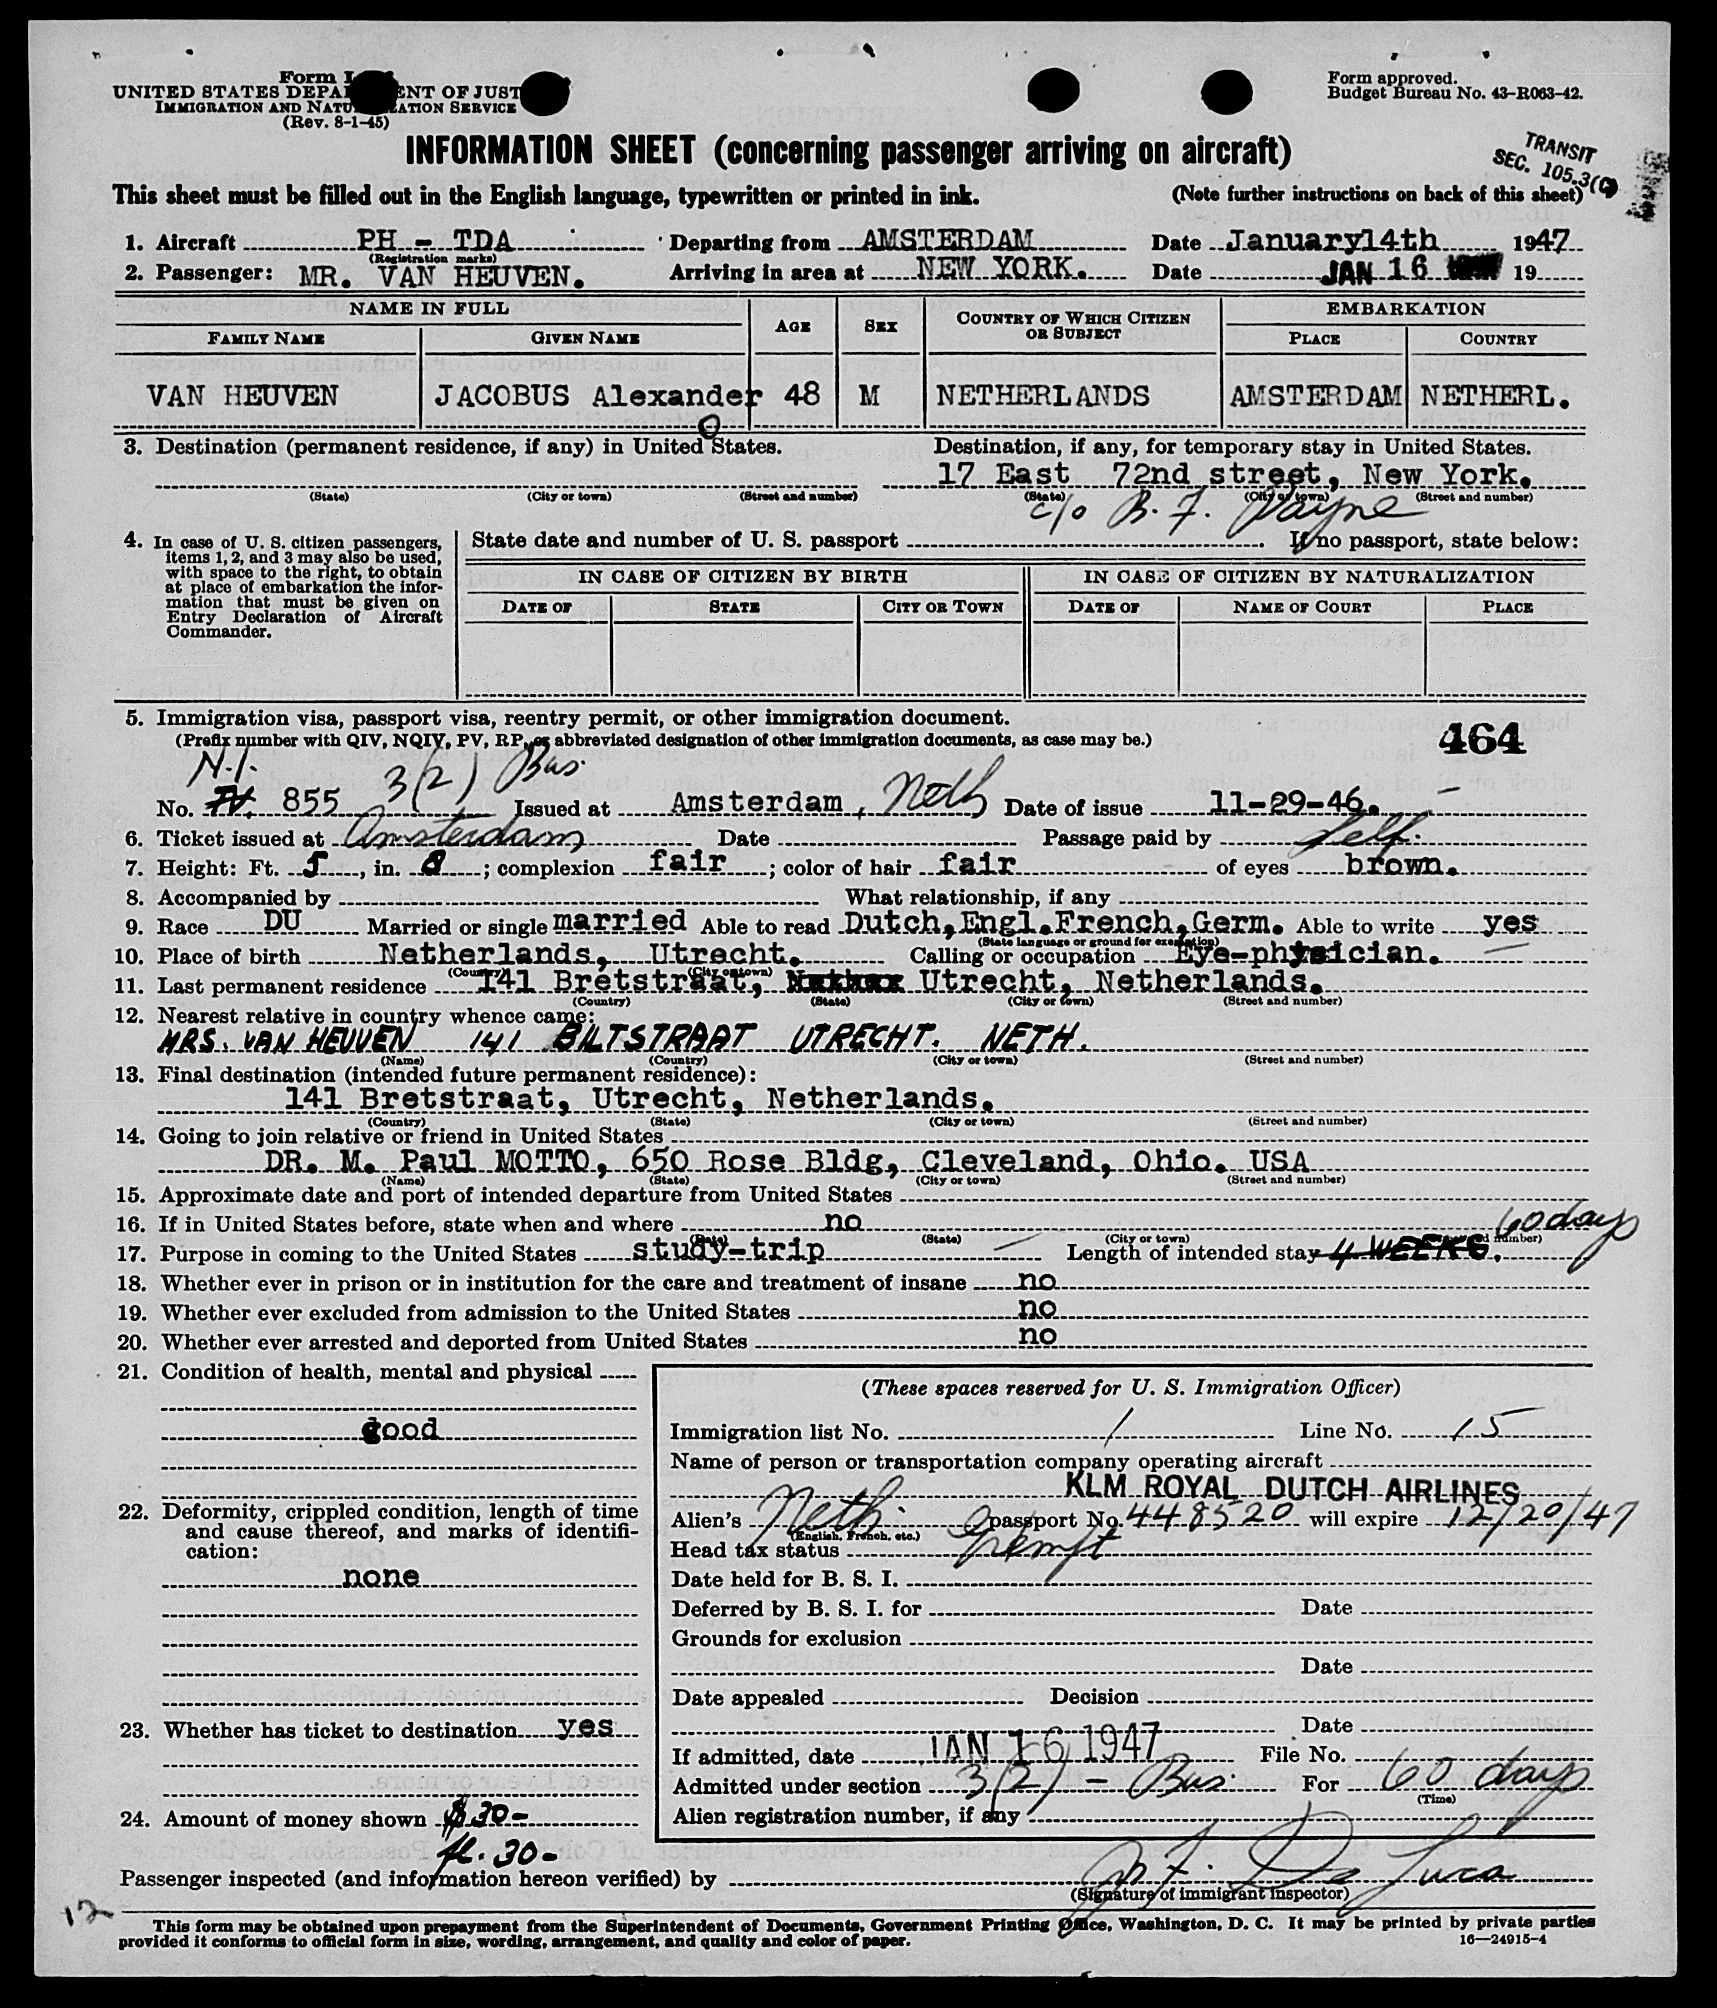 Form I
UNITED STATES DEPA ENT OF JUST
IMMIGRATION AND NATU ATION SERVICE
(Rev. 8-1-45)
Form approved.
Budget Bureau No. 43-R063-42.
INFORMATION SHEET (concerning passenger arriving on aircraft)
TRANSIT
SEC. 105.3(C)
This sheet must be filled out in the English language, typewritten or printed in ink. (Note further instructions on back of this sheet)
1. Aircraft PH - TDA Departing from AMSTERDAM Date January14th 1947
(Registration marks)
2. Passenger: MR. VAN HEUVEN. Arriving in area at NEW YORK. Date JAN 16 19
NAME IN FULL AGE SEX COUNTRY OF WHICH CITIZEN OR SUBJECT EMBARKATION
FAMILY NAME GIVEN NAME PLACE COUNTRY
VAN HEUVEN JACOBUS Alexander 48 M NETHERLANDS AMSTERDAM NETHERL.
3. Destination (permanent residence, if any) in United States. Destination, if any, for temporary stay in United States.
17 East 72nd street, New York.
(State) (City or town) (Street and number) (State) (City or town) (Street and number)
c/o B. F. Payne
4. In case of U. S. citizen passengers, items 1, 2, and 3 may also be used, with space to the right, to obtain at place of embarkation the information that must be given on Entry Declaration of Aircraft Commander.
State date and number of U. S. passport If no passport, state below:
IN CASE OF CITIZEN BY BIRTH IN CASE OF CITIZEN BY NATURALIZATION
DATE OF STATE CITY OR TOWN DATE OF NAME OF COURT PLACE
5. Immigration visa, passport visa, reentry permit, or other immigration document.
(Prefix number with QIV, NQIV, PV, RP, or abbreviated designation of other immigration documents, as case may be.)
464
N.I. 3(2) Bus.
No. TV. 855 Issued at Amsterdam, Neth Date of issue 11-29-46.
6. Ticket issued at Amsterdam Date Passage paid by Self.
7. Height: Ft. 5, in. 8; complexion fair; color of hair fair of eyes brown.
8. Accompanied by What relationship, if any
9. Race DU Married or single married Able to read Dutch,Engl.French,Germ. Able to write yes
(State language or ground for exemption)
10. Place of birth Netherlands, Utrecht. Calling or occupation Eye-physician.
(Country) (City or town)
11. Last permanent residence 141 Bretstraat, Utrecht, Netherlands.
(Country) (State) (City or town) (Street and number)
12. Nearest relative in country whence came:
MRS. VAN HEUVEN 141 BILTSTRAAT UTRECHT. NETH.
(Name) (Country) (City or town) (Street and number)
13. Final destination (intended future permanent residence):
141 Bretstraat, Utrecht, Netherlands.
(Country) (State) (City or town) (Street and number)
14. Going to join relative or friend in United States
DR. M. Paul MOTTO, 650 Rose Bldg, Cleveland, Ohio. USA
(Name) (State) (City or town) (Street and number)
15. Approximate date and port of intended departure from United States
16. If in United States before, state when and where no
(Date) (State) (City or town) (Street and number)
60 days
17. Purpose in coming to the United States study-trip Length of intended stay 4 WEEKS.
18. Whether ever in prison or in institution for the care and treatment of insane no
19. Whether ever excluded from admission to the United States no
20. Whether ever arrested and deported from United States no
21. Condition of health, mental and physical
good
22. Deformity, crippled condition, length of time and cause thereof, and marks of identification:
none
23. Whether has ticket to destination yes
24. Amount of money shown $30-
fl. 30-
(These spaces reserved for U. S. Immigration Officer)
Immigration list No. 1 Line No. 15
Name of person or transportation company operating aircraft
KLM ROYAL DUTCH AIRLINES
Alien's Neth. passport No. 448520 will expire 12/20/47
(English, French, etc.)
Head tax status Exempt
Date held for B. S. I.
Deferred by B. S. I. for Date
Grounds for exclusion
Date
Date appealed Decision
Date
If admitted, date JAN 16 1947 File No.
Admitted under section 3(2) - Bus. For 60 days
(Time)
Alien registration number, if any
Passenger inspected (and information hereon verified) by De Luca
(Signature of immigrant inspector)
12
This form may be obtained upon prepayment from the Superintendent of Documents, Government Printing Office, Washington, D. C. It may be printed by private parties
provided it conforms to official form in size, wording, arrangement, and quality and color of paper.
16—24915-4